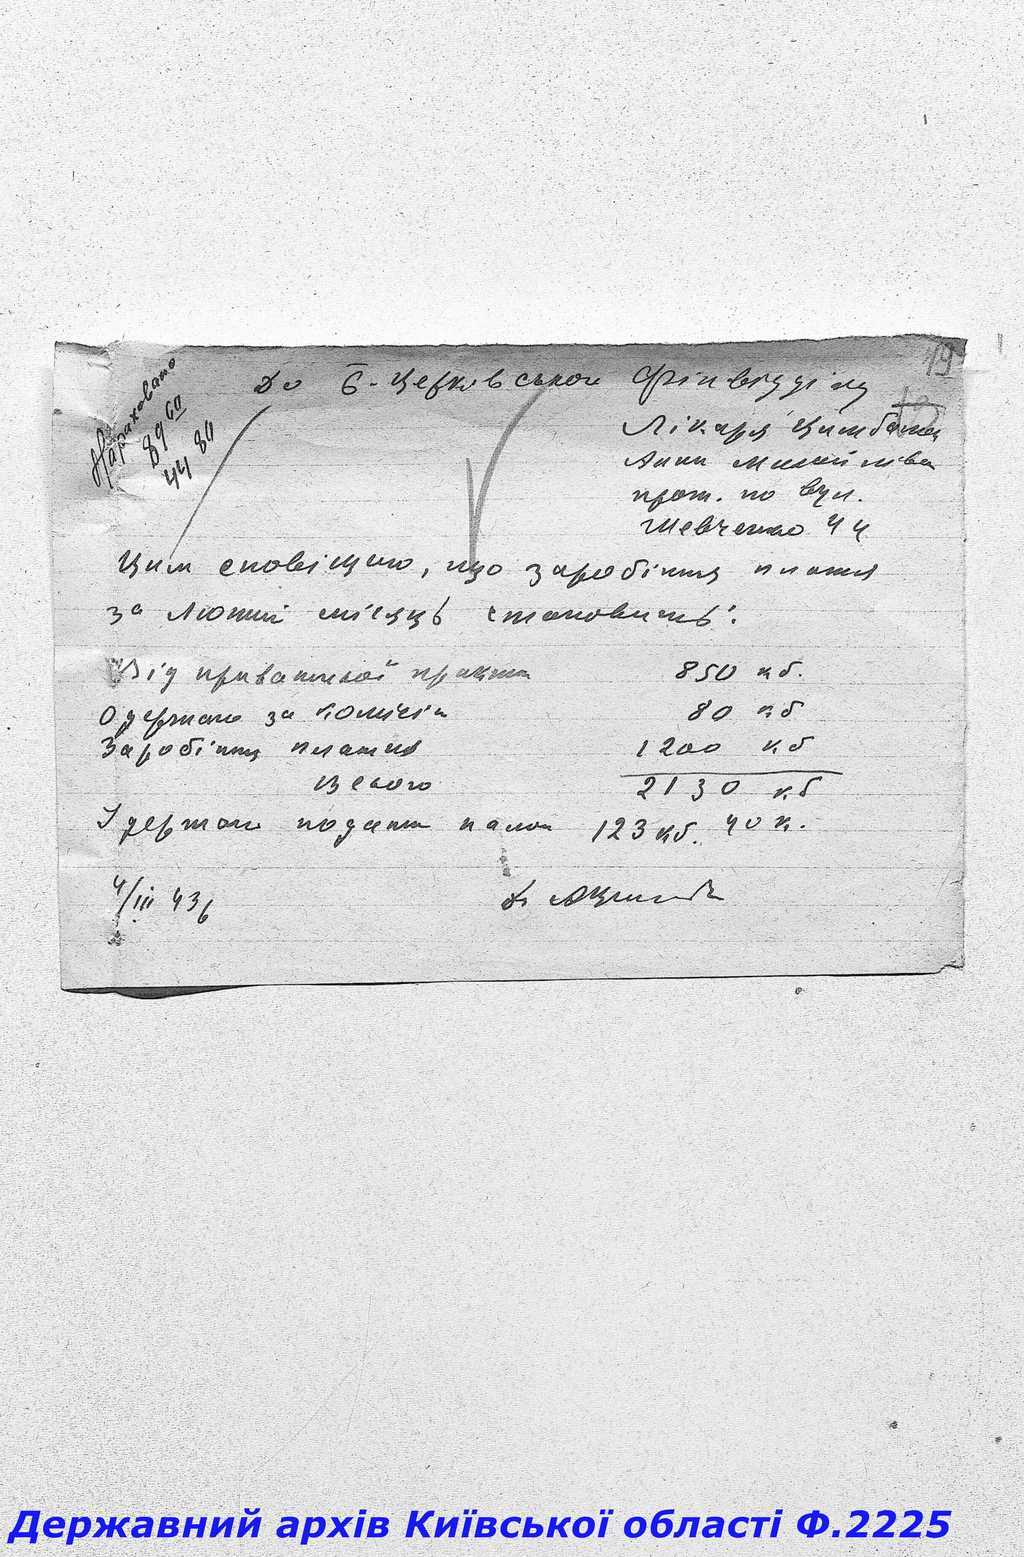 19
Нараховано
89 60
44 80
До Б-Церковського Фінвідділу
Лікаря Цимбалюк
Анни Михайлівни
прож. по вул.
Шевченко 44
Цим сповіщаю, що заробітня платня
за Лютий місяць становить:
Від приватньої практики 850 кб.
Одержано за комісії 80 кб
Заробітня платня 1200 кб
Всього 2130 кб
Удержано податки 123 кб. 40 к.
4/III 43
Державний архів Київської області Ф.2225